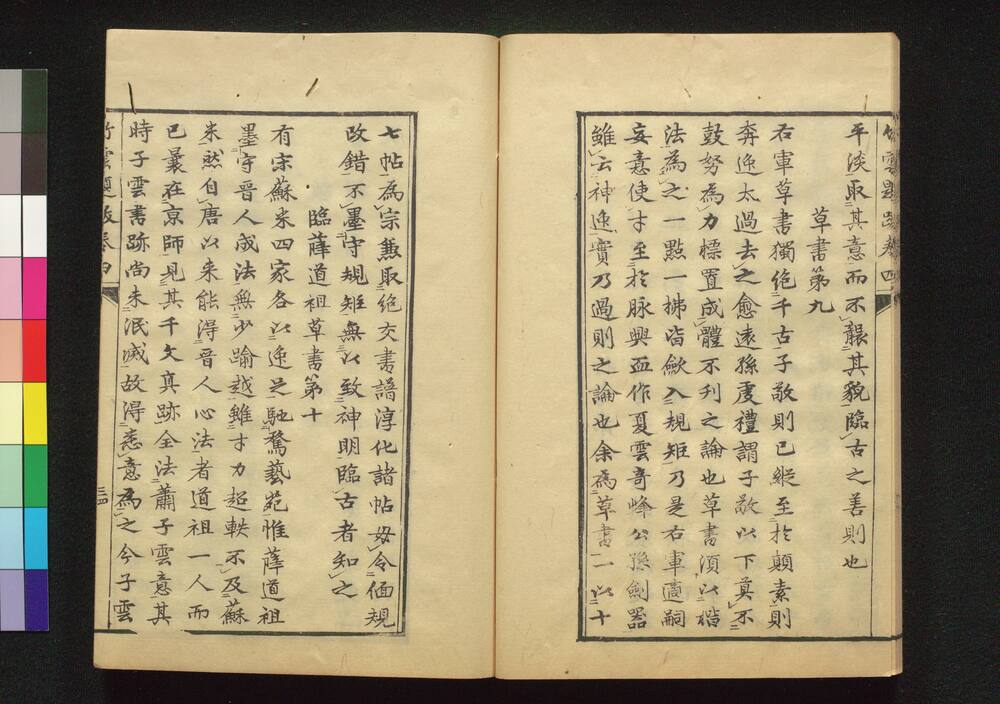 竹雲題跋卷四
平淡取其意而不襲其貌臨古之善則也
草書第九
右軍草書獨絶千古子敬則已縱至於顛素則
奔逸太過去之愈遠孫虔禮謂子敬以下莫不
鼓努為力標置成體不刋之論也草書須以楷
法為之一點一拂皆歛入規矩乃是右軍適嗣
妄意使才至於脉興血作夏雲奇峰公孫劍器
雖云神逸實乃過則之論也余為草書一以十
七帖為宗兼取絶交書譜淳化諸帖毋令偭規
改錯不墨守規矩無以致神明臨古者知之
臨薛道祖草書第十
有宋蘇米四家各以逸足馳騖藝苑惟薛道祖
墨守晋人成法無少踰越雖才力超軼不及蘇
米然自唐以來能得晋人心法者道祖一人而
已曩在京師見其千文真跡全法蕭子雲意其
時子雲書跡尚未泯滅故得悉意為之今子雲
竹雲題跋卷四